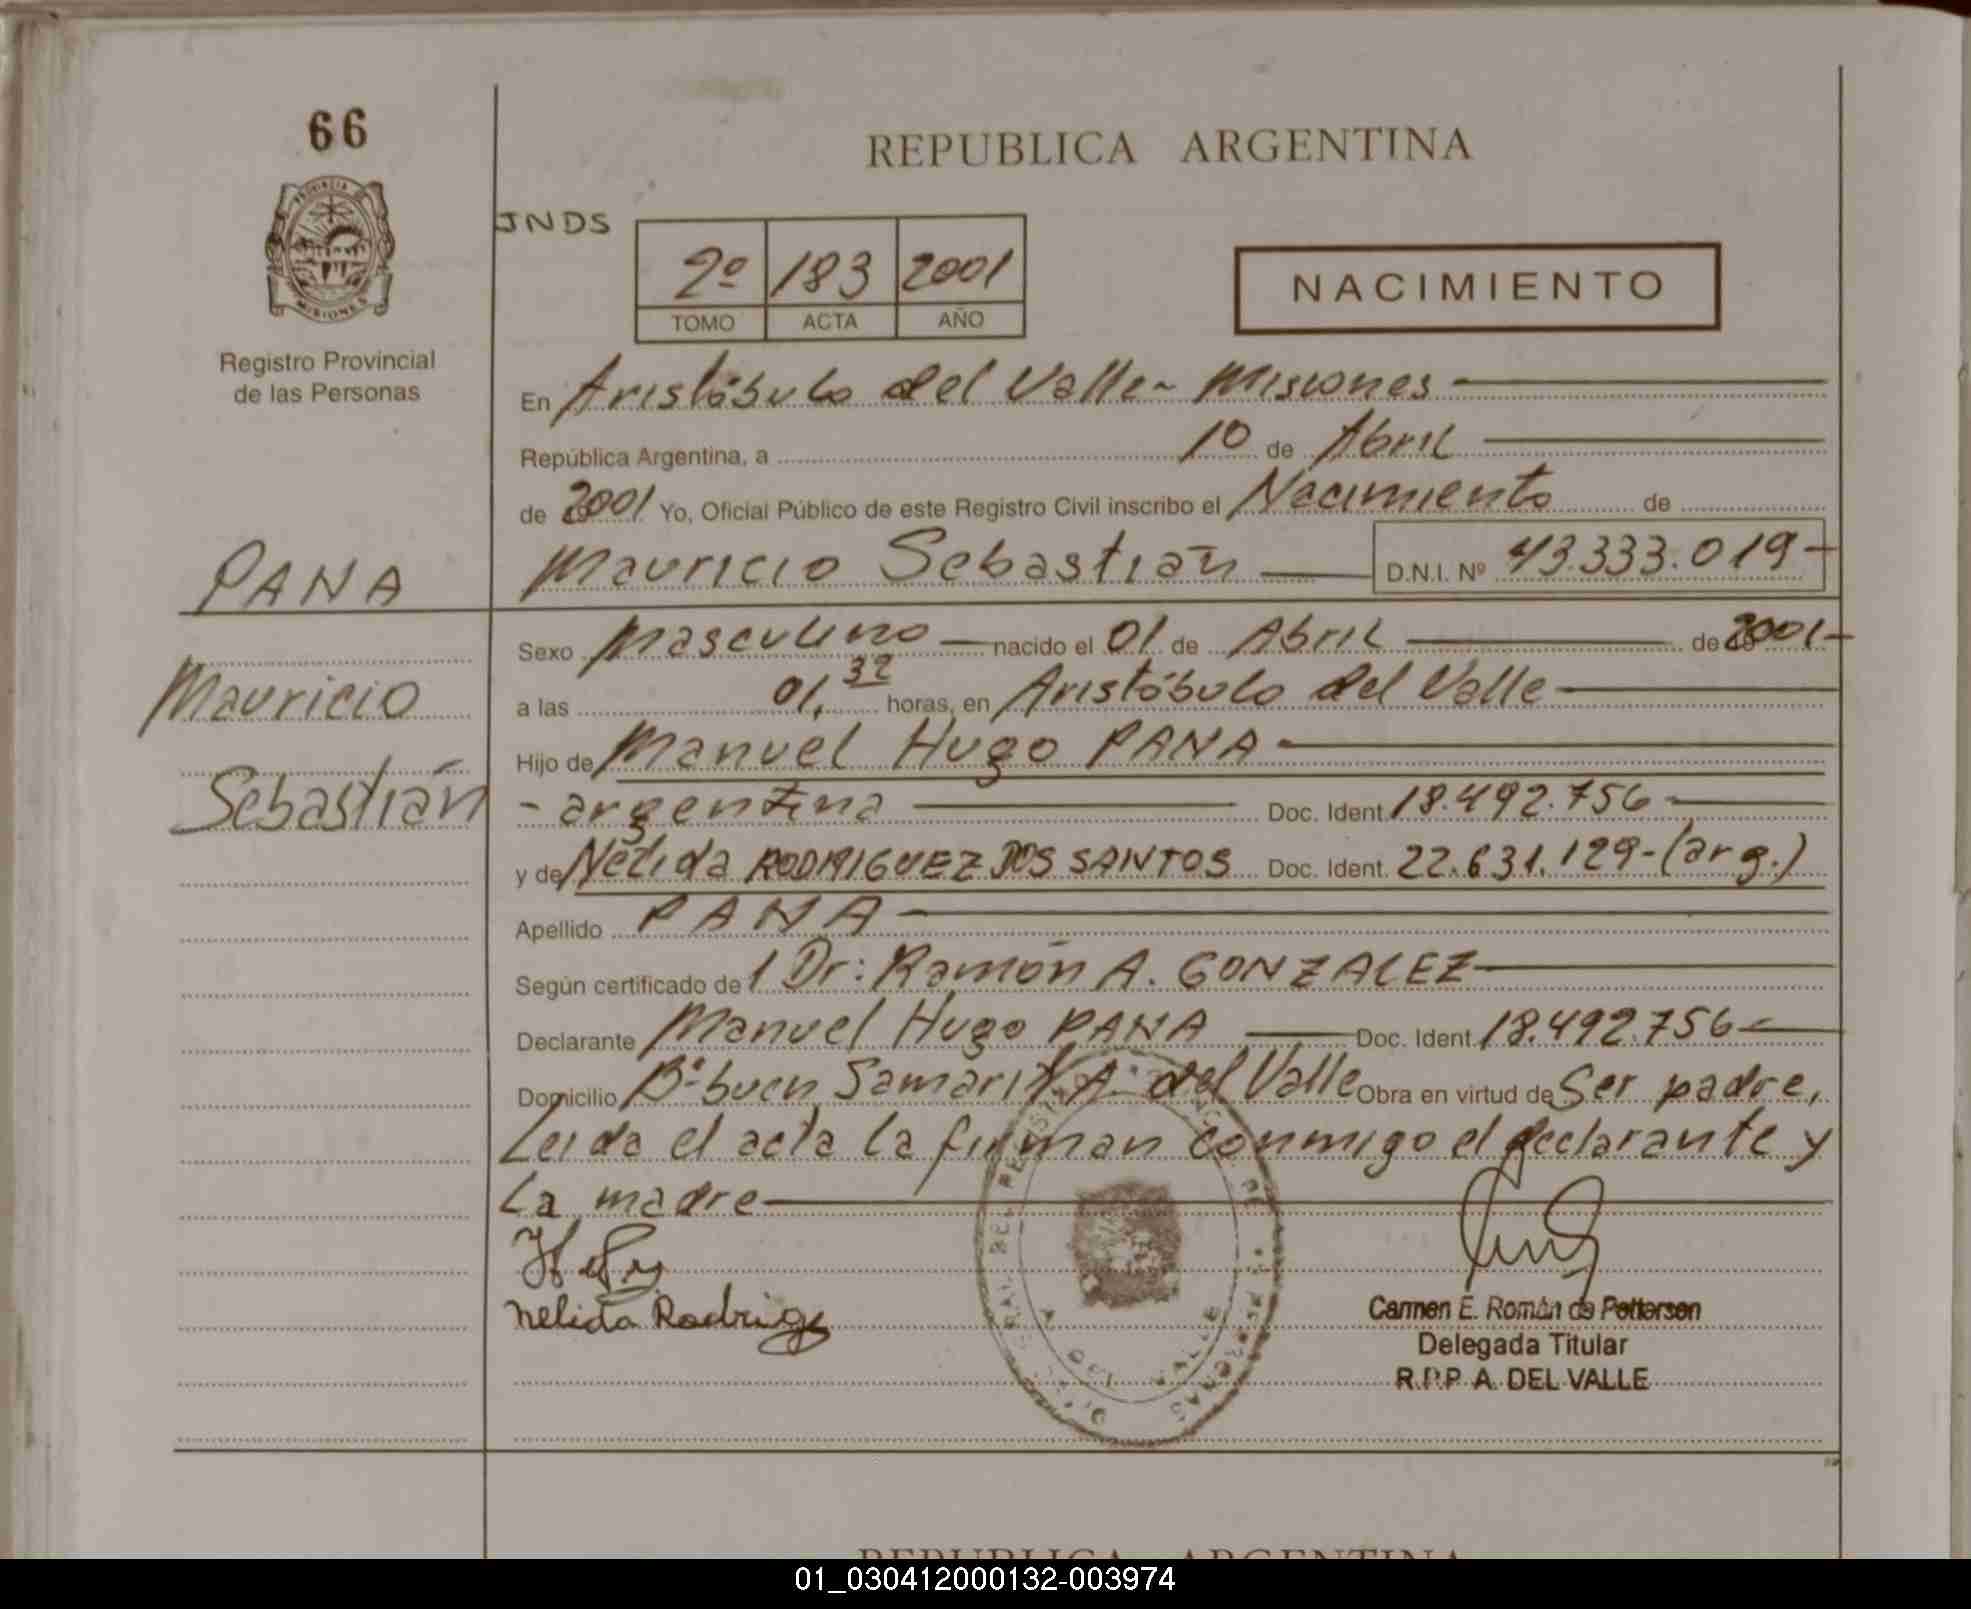 66
REPUBLICA ARGENTINA
JNDS
2º 183 2001
TOMO ACTA AÑO
NACIMIENTO
PROVINCIA DE
MISIONES
Registro Provincial
de las Personas
En Aristóbulo del Valle - Misiones
República Argentina, a 10 de Abril
de 2001 Yo, Oficial Público de este Registro Civil inscribo el Nacimiento de
Mauricio Sebastián D.N.I. Nº 43.333.019
PANA
Mauricio
Sebastián
Sexo Masculino nacido el 01 de Abril de 2001
a las 01,32 horas, en Aristóbulo del Valle
Hijo de Manuel Hugo PANA
- argentina Doc. Ident. 18.492.756
y de Nélida RODRIGUEZ DOS SANTOS Doc. Ident. 22.631.129-(arg.)
Apellido PANA
Según certificado de 1 Dr: Ramón A. GONZALEZ
Declarante Manuel Hugo PANA Doc. Ident. 18.492.756
Domicilio Bº buen Samarit A. del Valle Obra en virtud de Ser padre,
Leida el acta la firman conmigo el declarante y
la madre
Nelida Rodrigz
Carmen E. Román de Pettersen
Delegada Titular
R.P.P. A. DEL VALLE
A. DEL VALLE
REPUBLICA ARGENTINA
01_030412000132-003974